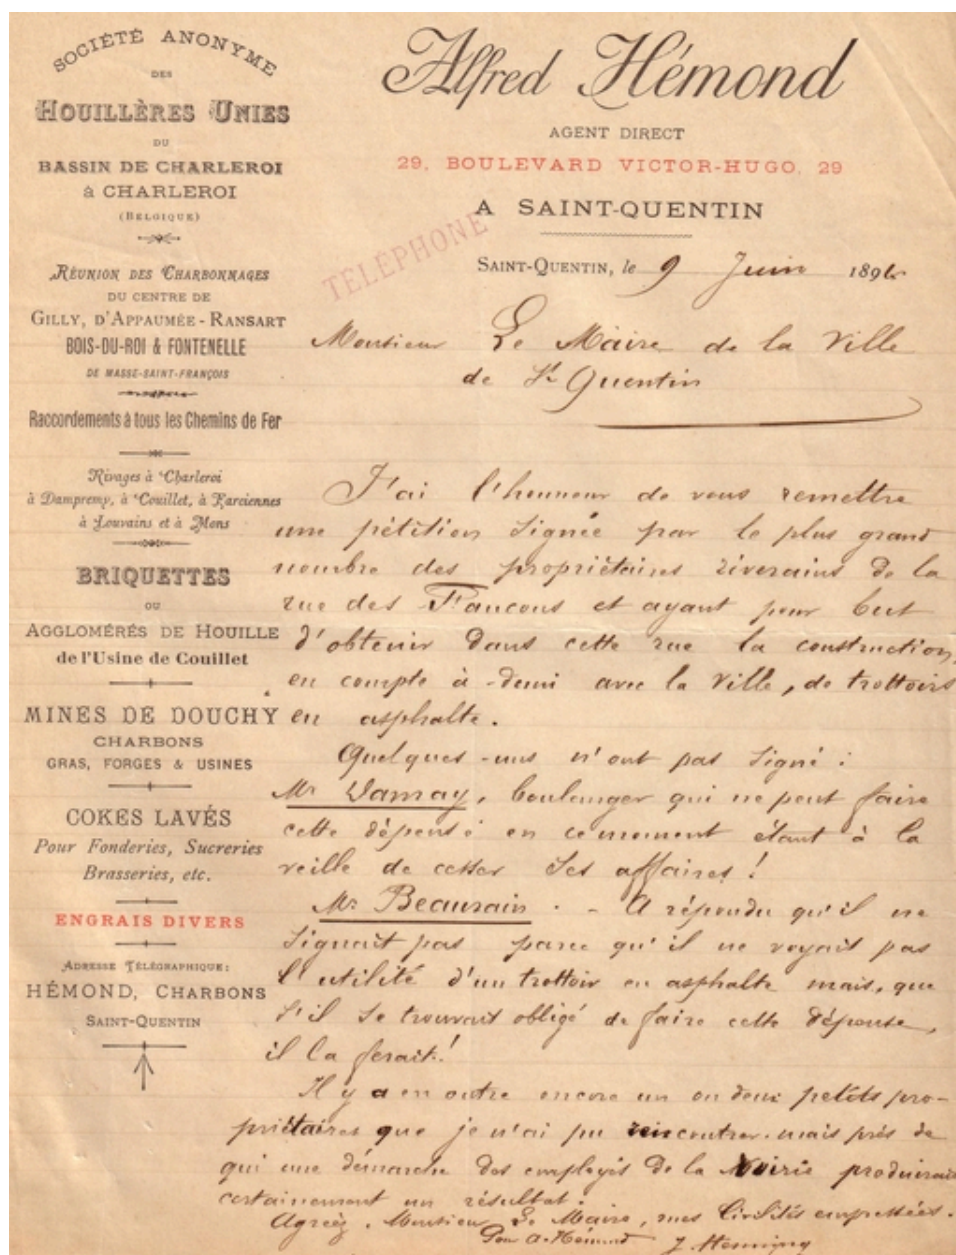 SOCIÉTÉ ANONYME
DES
HOUILLÈRES UNIES
DU
BASSIN DE CHARLEROI
à CHARLEROI
(BELGIQUE)
RÉUNION DES CHARBONNAGES
DU CENTRE DE
GILLY, D'APPAUMÉE-RANSART
BOIS-DU-ROI & FONTENELLE
DE MASSE-SAINT-FRANÇOIS
Raccordements à tous les Chemins de Fer
Rivages à Charleroi
à Dampremy, à Couillet, à Farciennes
à Louvains et à Mons
BRIQUETTES
OU
AGGLOMÉRÉS DE HOUILLE
de l'Usine de Couillet
MINES DE DOUCHY
CHARBONS
GRAS, FORGES & USINES
COKES LAVÉS
Pour Fonderies, Sucreries
Brasseries, etc.
ENGRAIS DIVERS
ADRESSE TÉLÉGRAPHIQUE:
HÉMOND, CHARBONS
SAINT-QUENTIN
Alfred Hémond
AGENT DIRECT
29, BOULEVARD VICTOR-HUGO, 29
A SAINT-QUENTIN
TÉLÉPHONE
SAINT-QUENTIN, le 9 Juin 189
Monsieur Le Maire de la Ville
de St Quentin
J'ai l'honneur de vous remettre
une pétition signée par le plus grand
nombre des propriétaires riverains de la
rue des Faucons et ayant pour but
d'obtenir dans cette rue la construction,
en compte à-demi avec la Ville, de trottoirs
en asphalte.
Quelques-uns n'ont pas signé :
Mr Damay, boulanger qui ne peut faire
cette dépense en ce moment étant à la
veille de cesser ses affaires !
Mr Beaurain. - A répondu qu'il ne
signait pas parce qu'il ne voyait pas
l'utilité d'un trottoir en asphalte mais, que
s'il se trouvait obligé de faire cette dépense,
il la ferait !
Il y a en outre encore un ou deux petits pro-
priétaires que je n'ai pu rencontrer. mais près de
qui une démarche des employés de la Voirie produirait
certainement un résultat.
Agréez, Monsieur Le Maire, mes Civilités empressées.
Pour A. Hémond